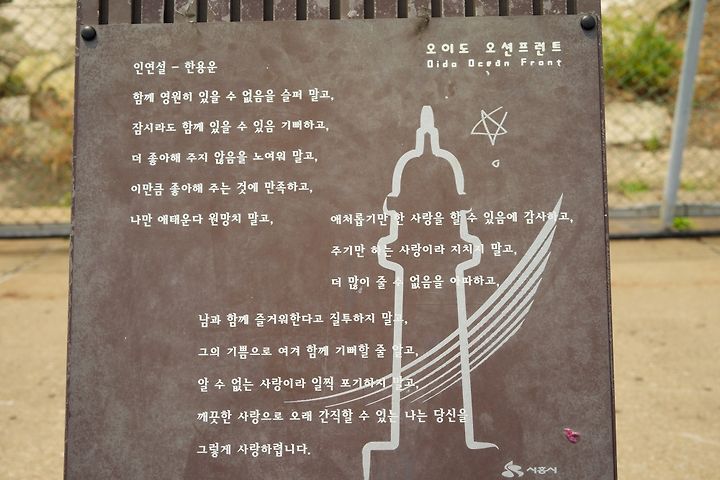 오이도 오션프런트
Oido Ocean Front
인연설 – 한용운
함께 영원히 있을 수 없음을 슬퍼 말고,
잠시라도 함께 있을 수 있음 기뻐하고,
더 좋아해 주지 않음을 노여워 말고,
이만큼 좋아해 주는 것에 만족하고,
나만 애태운다 원망치 말고,
애처롭기만 한 사랑을 할 수 있음에 감사하고,
주기만 하는 사랑이라 지치지 말고,
더 많이 줄 수 없음을 아파하고,
남과 함께 즐거워한다고 질투하지 말고,
그의 기쁨으로 여겨 함께 기뻐할 줄 알고,
알 수 없는 사랑이라 일찍 포기하지 말고,
깨끗한 사랑으로 오래 간직할 수 있는 나는 당신을
그렇게 사랑하렵니다.
시흥시